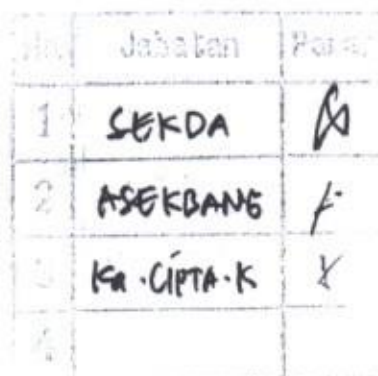 No. Jabatan Paraf
1 SEKDA
2 ASEKBANG
3 Ka. CIPTA. K
4